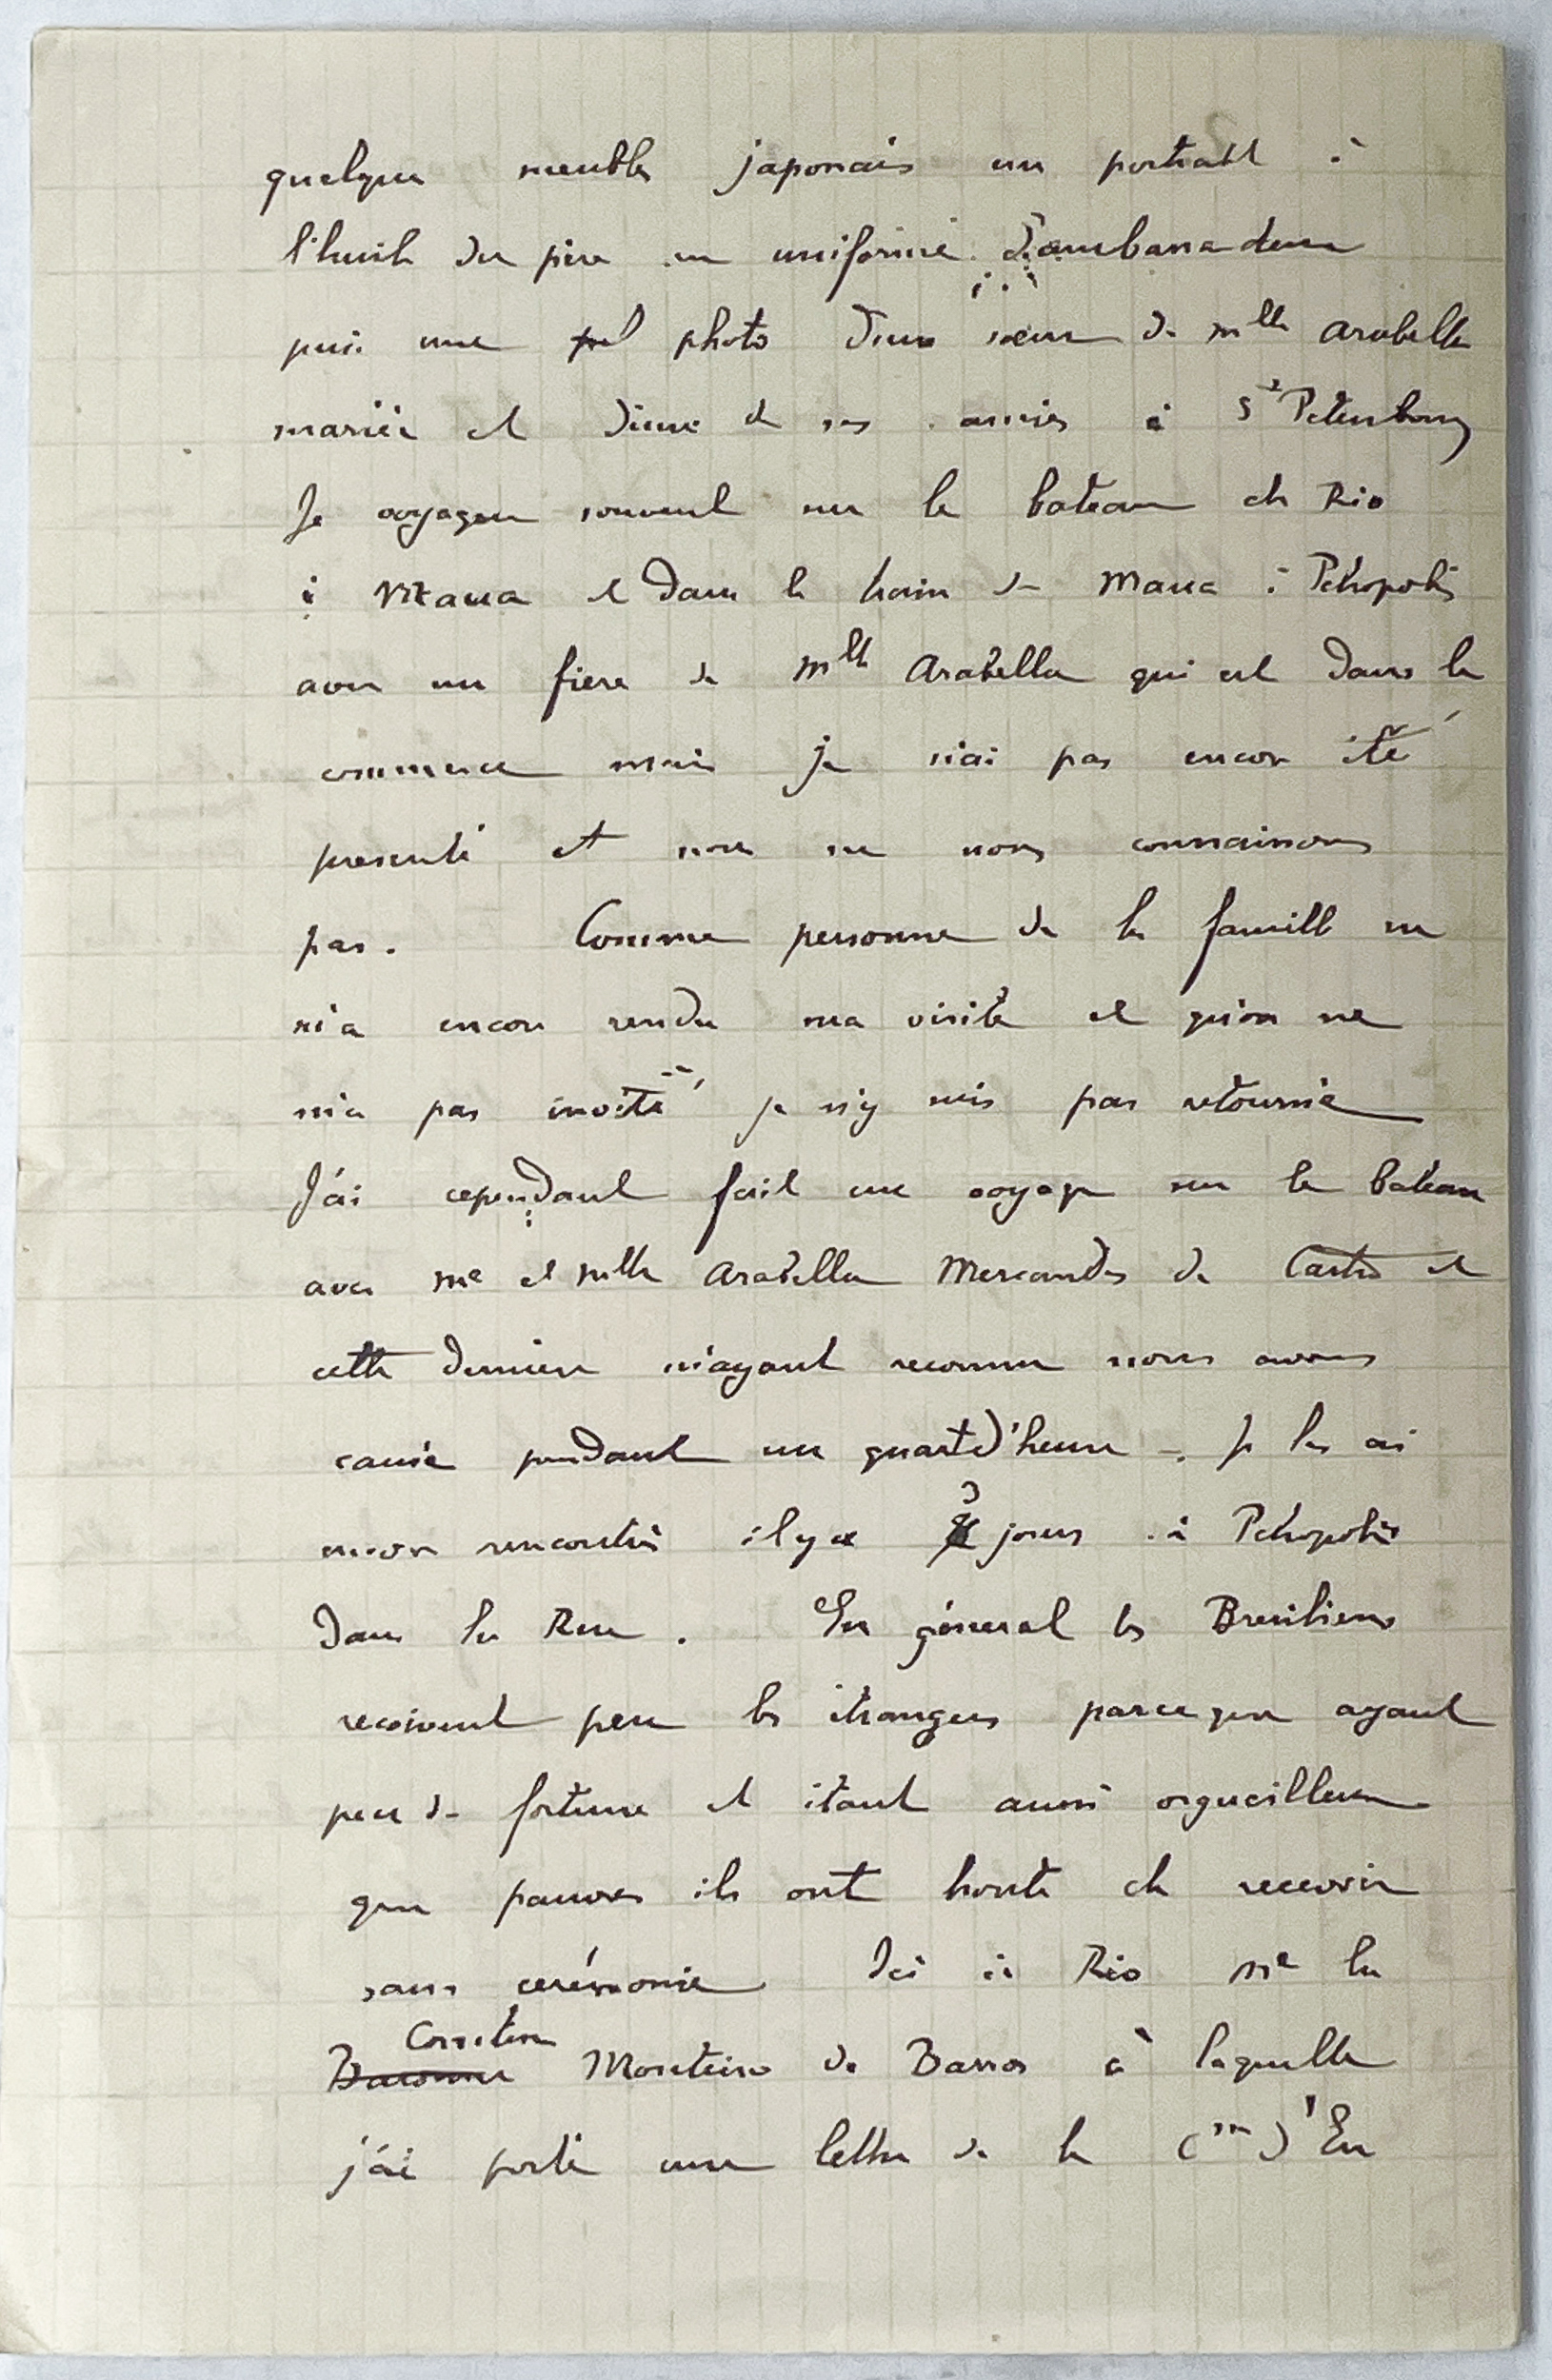 quelques meubles japonais un portrait à
l'huile du père en uniforme d'ambassadeur
puis une photo d'une soeur de Mlle Arabella
mariée et d'une de ses amies à St Petersbourg
Je voyage souvent sur le bateau de Rio
à Maua et dans le train de Maua à Petropolis
avec un frère de Mlle Arabella qui est dans le
commerce mais je n'ai pas encore été
presenté et nous ne nous connaissons
pas. Comme personne de la famille ne
m'a encore rendu ma visite et qu'on ne
m'a pas invité je n'y suis pas retourné
J'ai cependant fait un voyage sur le bateau
avec Me et Mlle Arabella de Castro et
cette derniere m'ayant reconnu nous avons
causé pendant un quart d'heure -. Je les ai
encore rencontrés il y a 3 jours à Petropolis
dans la Rue. En géneral les Bresiliens
recoivent peu les étrangers parceque ayant
peu de fortune et étant aussi orgueilleux
que pauvres ils ont honte de recevoir
sans cerémonie Ici à Rio Me la
Comtesse
Baronne Monteiro de Barros à laquelle
j'ai porté une lettre de la Csse d'Eu